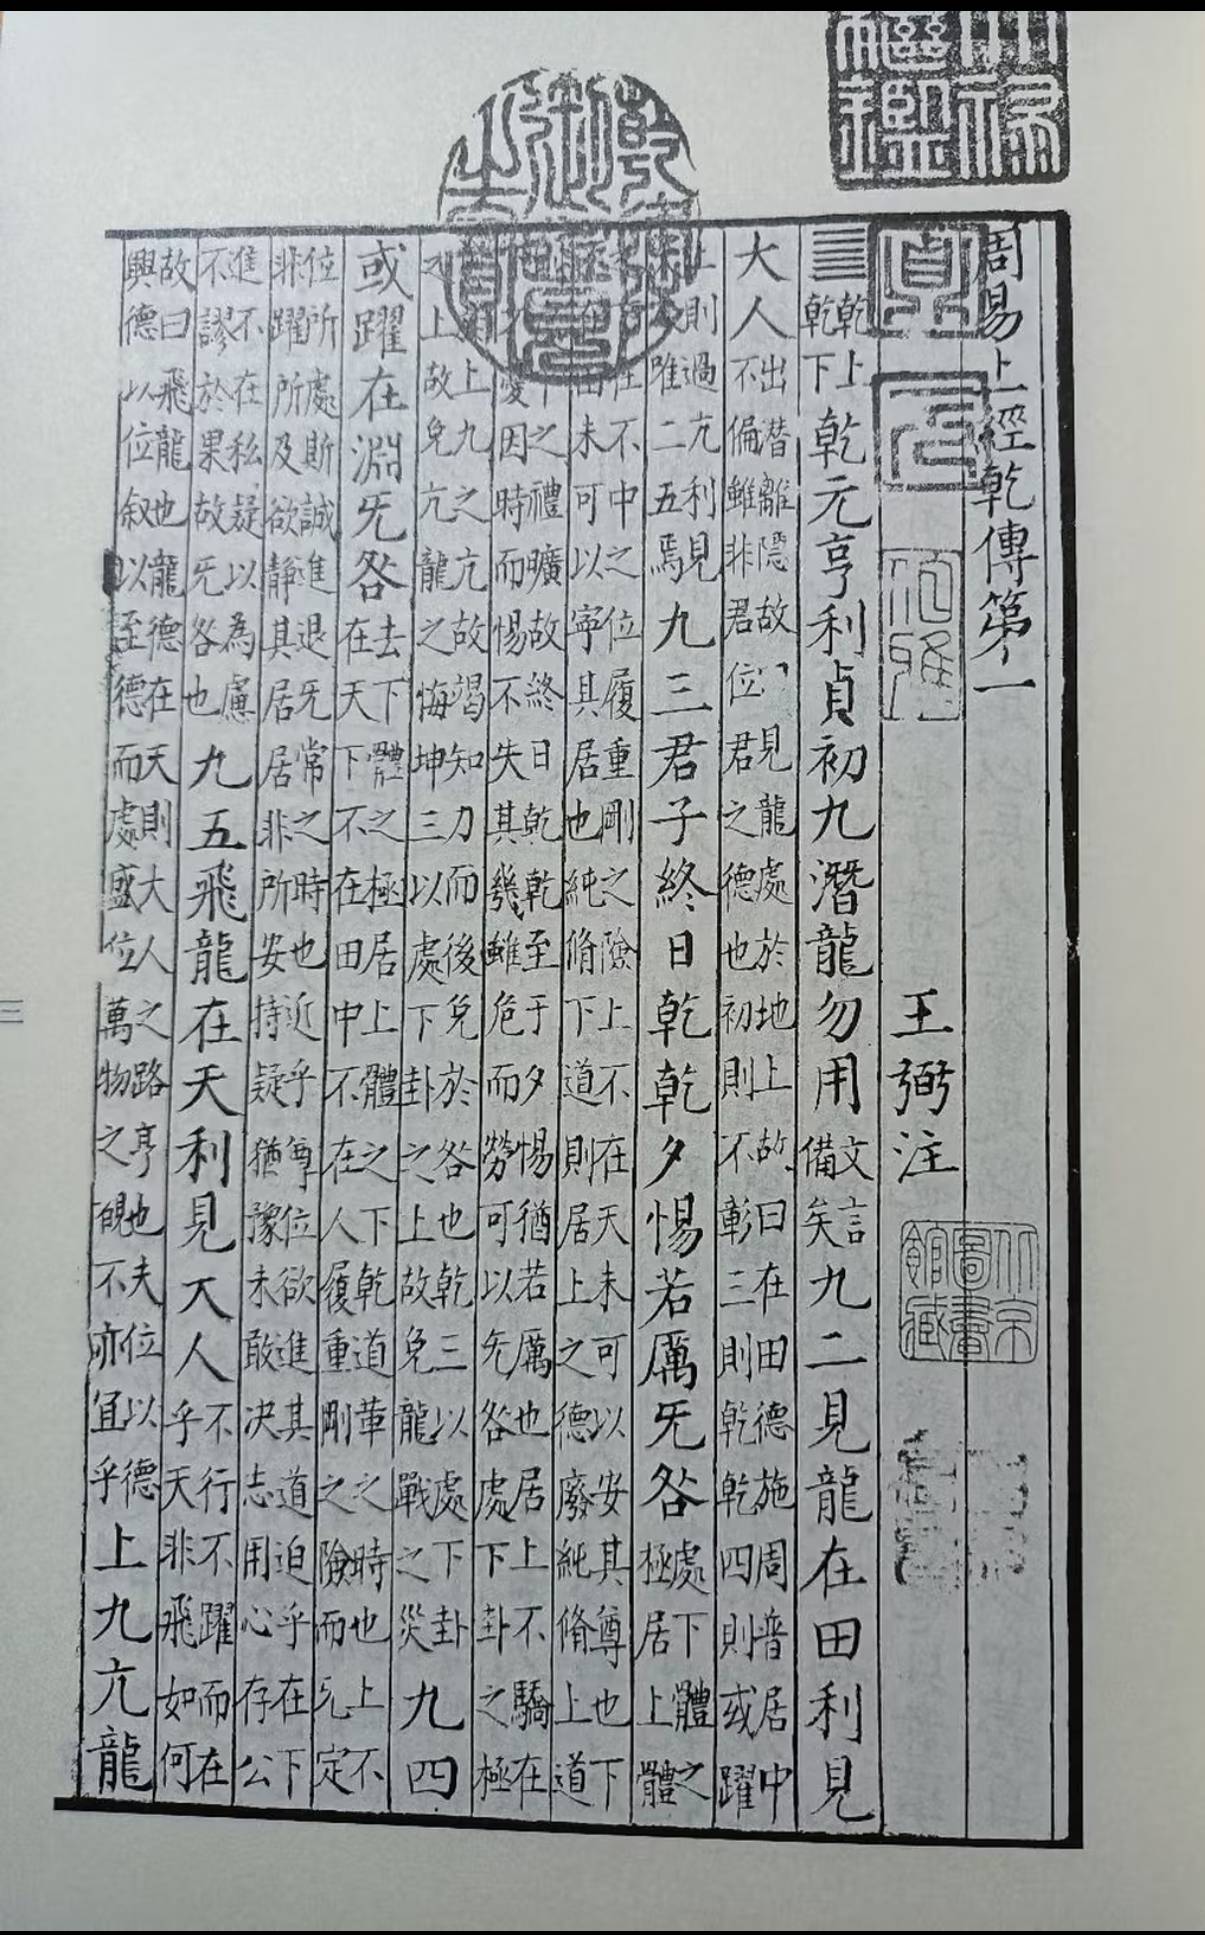 周易上經乾傳第一
王弼注
䷀乾上乾下乾元亨利貞初九潛龍勿用文言備矣九二見龍在田利見
大人出潛離隱故曰見龍處於地上故曰在田德施周普居中不偏雖非君位君之德也初則不彰三則乾乾四則或躍
上則過亢利見唯二五焉九三君子終日乾乾夕惕若厲无咎處下體之極居上體
在不中之位履重剛之險上不在天未可以安其尊也下田未可以寧其居也純脩下道則居上之德廢純脩上道
下之禮曠故終日乾乾至于夕惕猶若厲也居上不驕在憂因時而惕不失其幾雖危而勞可以无咎處下卦之極
上九之亢故竭知力而後免於咎也乾三以處下卦之上故免亢龍之悔坤三以處下卦之上故免龍戰之災九四
或躍在淵无咎去下體之極居上體之下乾道革之時也上不在天下不在田中不在人履重剛之險而无定
位所處斯誠進退无常之時也近乎尊位欲進其道迫乎在下非躍所及欲靜其居居非所安持疑猶豫未敢決志用心存公
進不在私疑以為慮不謬於果故无咎也九五飛龍在天利見大人不行不躍而在乎天非飛如何
故曰飛龍也龍德在天則大人之路亨也夫位以德興德以位叙以至德而處盛位萬物之覩不亦宜乎上九亢龍
三
北京圖書館藏